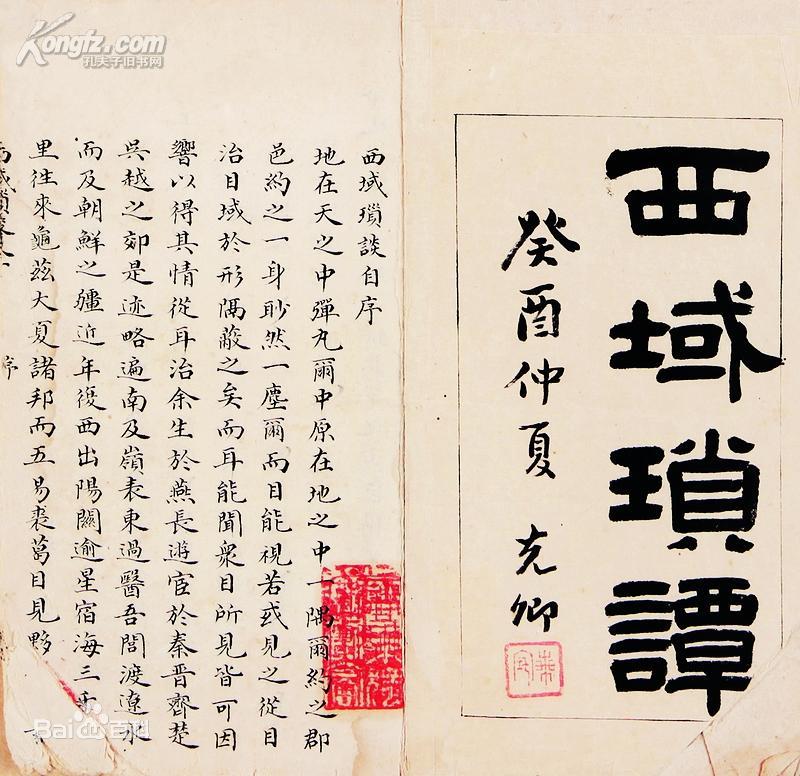 西域瑣譚
癸酉仲夏 克卿
西域瑣談自序
地在天之中彈丸爾中原在地之中一隅爾約之郡
邑約之一身眇然一塵爾而目能視若或見之從目
治目域於形隅蔽之矣而耳能聞衆目所見皆可因
響以得其情從耳治余生於燕長遊宦於秦晉齊楚
吳越之郊是迹略遍南及嶺表東過醫吾閭渡遼水
而及朝鮮之疆近年復西出陽關逾星宿海三千
里往來龜茲大夏諸邦而五易裘葛目見夥
序
Kongfz.com
孔夫子旧书网
Bai百科